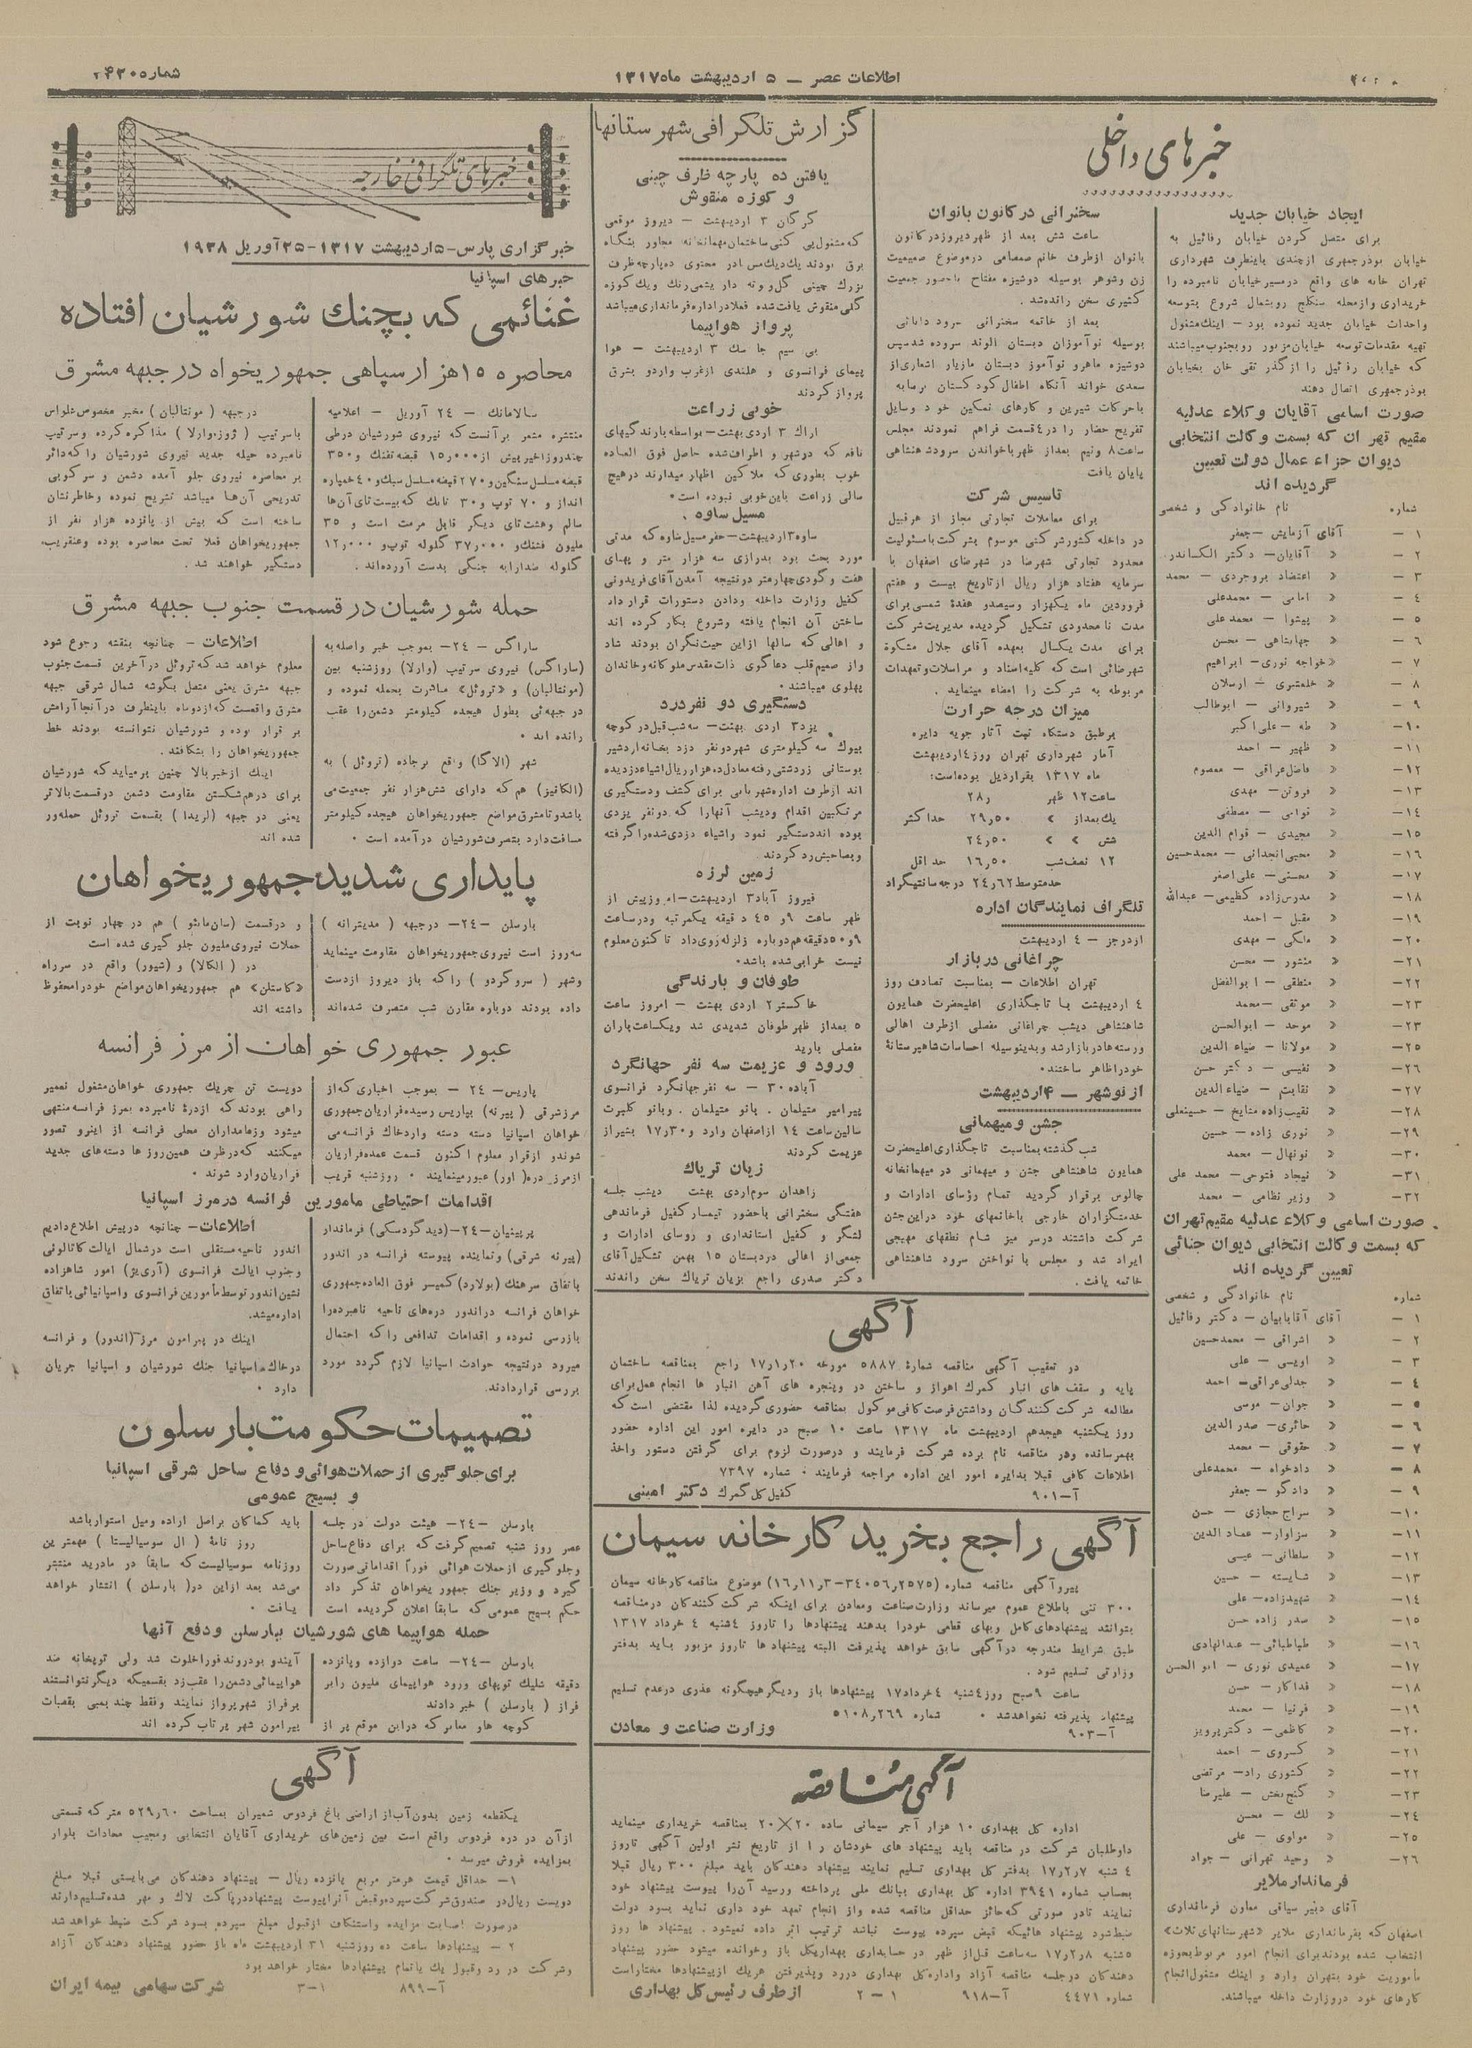 اطلاعات عصر — ۵ اردیبهشت ماه ۱۳۱۷
خبرهای داخلی
ایجاد خیابان جدید
برای متصل کردن خیابان رفائیل به
خیابان بوذرجمهری ازچندی باینطرف شهرداری
تهران خانه های واقع درمسیر خیابان نامبرده را
خریداری و ازمحله سنگلج روبشمال شروع بتوسعه
واحداث خیابان جدید نموده بود — اینک مشغول
تهیه مقدمات توسعه خیابان مزبور روبجنوب میباشند
که خیابان رفائیل را از گذر تقی خان بخیابان
بوذرجمهری اتصال دهند
صورت اسامی آقایان وکلاء عدلیه
مقیم تهران که بسمت وکالت انتخابی
دیوان جزاء عمال دولت تعیین
گردیده اند
شماره نام خانوادگی و شخصی
۱ — آقای آزمایش — جعفر
۲ — « آقایان — دکتر الکساندر
۳ — « اعتضاد بروجردی — محمد
۴ — « امامی — محمدعلی
۵ — « پیشوا — محمد علی
۶ — « جهانشاهی — محسن
۷ — « خواجه نوری — ابراهیم
۸ — « خلعتبری — ارسلان
۹ — « شیروانی — ابوطالب
۱۰ — « طه — علی اکبر
۱۱ — « ظهیر — احمد
۱۲ — « فاضل عراقی — معصوم
۱۳ — « فروتن — مهدی
۱۴ — « قوامی — مصطفی
۱۵ — « مجیدی — قوام الدین
۱۶ — « محبی انجدانی — محمدحسین
۱۷ — « محسنی — علی اصغر
۱۸ — « مدرس زاده کظیمی — عبدالله
۱۹ — « مقبل — احمد
۲۰ — « ملکی — مهدی
۲۱ — « منشور — محسن
۲۲ — « منطقی — ابوالفضل
۲۳ — « موثقی — محمد
۲۳ — « موحد — ابوالحسن
۲۵ — « مولانا — ضیاء الدین
۲۶ — « نفیسی — دکتر حسن
۲۷ — « نقابت — ضیاء الدین
۲۸ — « نقیب زاده مشایخ — حسینعلی
۲۹ — « نوری زاده — حسین
۳۰ — « نونهال — محمد
۳۱ — « نیجاد فتوحی — محمد علی
۳۲ — « وزیر نظامی — محمد
صورت اسامی وکلاء عدلیه مقیم تهران
که بسمت وکالت انتخابی دیوان جنائی
تعیین گردیده اند
شماره نام خانوادگی و شخصی
۱ — آقای آقابابیان — دکتر رفائیل
۲ — « اشراقی — محمدحسین
۳ — « اویسی — علی
۴ — « جدلی عراقی — احمد
۵ — « جوان — موسی
۶ — « حائری — صدر الدین
۷ — « حقوقی — محمد
۸ — « دادخواه — محمدعلی
۹ — « دادگو — جعفر
۱۰ — « سراج حجازی — حسن
۱۱ — « سزاوار — عماد الدین
۱۲ — « سلطانی — عیسی
۱۳ — « شایسته — حسین
۱۴ — « شهیدزاده — علی
۱۵ — « صدر زاده حسن
۱۶ — « طباطبائی — عبدالهادی
۱۷ — « عمیدی نوری — ابو الحسن
۱۸ — « فداکار — حسن
۱۹ — « فرنیا — محمد
۲۰ — « کاظمی — دکتر پرویز
۲۱ — « کسروی — احمد
۲۲ — « کشوری راد — مرتضی
۲۳ — « گنج بخش — علیرضا
۲۴ — « لک — محسن
۲۵ — « مولوی — علی
۲۶ — « وحید تهرانی — جواد
فرماندار ملایر
آقای دبیر سیاقی معاون فرمانداری
اصفهان که بفرمانداری ملایر «شهرستانهای ثلاث»
انتخاب شده بودند برای انجام امور مربوط بحوزه
مأموریت خود بتهران وارد و اینک مشغول انجام
کارهای خود دروزارت داخله میباشند.
سخنرانی در کانون بانوان
ساعت شش بعد از ظهر دیروز در کانون
بانوان ازطرف خانم صمصامی درموضوع صمیمیت
زن وشوهر بوسیله دوشیزه مفتاح باحضور جمعیت
کثیری سخن رانده شد.
بعد از خاتمه سخنرانی سرود دانائی
بوسیله نوآموزان دبستان الوند سروده شد سپس
دوشیزه ماهرو نوآموز دبستان مازیار اشعاری از
سعدی خواند آنگاه اطفال کودکستان برسابه
باحرکات شیرین و کارهای نمکین خود وسایل
تفریح حضار را در ۴ قسمت فراهم نمودند مجلس
ساعت ۸ ونیم بعداز ظهر باخواندن سرود شاهنشاهی
پایان یافت
تاسیس شرکت
برای معاملات تجارتی مجاز از هر قبیل
در داخله کشور شرکتی موسوم بشرکت بامسئولیت
محدود تجارتی شهرضا در شهرضای اصفهان با
سرمایه هفتاد هزار ریال ازتاریخ بیست و هفتم
فروردین ماه یکهزار وسیصدو هفدۀ شمسی برای
مدت نامحدودی تشکیل گردیده مدیریت شرکت
برای مدت یکسال بعهده آقای جلال مشکوة
شهرضائی است که کلیه اسناد و مراسلات و تعهدات
مربوطه به شرکت را امضاء مینماید.
میزان درجه حرارت
برطبق دستگاه ثبت آثار جویه دایره
آمار شهرداری تهران روز ۴ اردیبهشت
ماه ۱۳۱۷ بقرار ذیل بوده است:
ساعت ۱۲ ظهر ۲۸٫
یک بعداز » ۲۹٫۵۰ حداکثر
شش » » ۲۴٫۵۰
۱۲ نصف شب ۱۶٫۵۰ حداقل
حدمتوسط ۲۴٫۶۲ درجه سانتیگراد
تلگراف نمایندگان اداره
ازدرجز — ۴ اردیبهشت
چراغانی در بازار
تهران اطلاعات — بمناسبت تصادف روز
۴ اردیبهشت با تاجگذاری اعلیحضرت همایون
شاهنشاهی دیشب چراغانی مفصلی ازطرف اهالی
ورسته ها دربازارشد و بدینوسیله احساسات شاهپرستانۀ
خودرا ظاهر ساختند.
از نوشهر — ۴ اردیبهشت
جشن و میهمانی
شب گذشته بمناسبت تاجگذاری اعلیحضرت
همایون شاهنشاهی جشن و میهمانی در میهمانخانه
چالوس برقرار گردید تمام رؤسای ادارات و
خدمتگزاران خارجی باخانمهای خود دراین جشن
شرکت داشتند درسر میز شام نطقهای مهیجی
ایراد شد و مجلس با نواختن سرود شاهنشاهی
خاتمه یافت.
گزارش تلگرافی شهرستانها
یافتن ده پارچه ظرف چینی
و کوزه منقوش
گرگان ۳ اردیبهشت — دیروز موقعی
که مشغول پی کنی ساختمان مهمانخانه مجاور بنگاه
برق بودند یک دیگ مس در محتوی ده پارچه ظرف
بزرگ چینی گل و بوته دار یشمی رنگ و یک کوزه
گلی منقوش یافت شده فعلا در اداره فرمانداری میباشد
پرواز هواپیما
بی سیم جاسک ۳ اردیبهشت — هوا
پیمای فرانسوی و هلندی ازغرب واردو بشرق
پرواز کردند
خوبی زراعت
اراک ۳ اردی بهشت — بواسطه بارندگیهای
نافع که دوشهر و اطراف شده حاصل فوق العاده
خوب بطوری که ملاکین اظهار میدارند درهیچ
سالی زراعت باین خوبی نبوده است.
مسیل ساوه
ساوه ۳ اردیبهشت — حفر مسیل ساوه که مدتی
مورد بحث بود بدرازی سه هزار متر و پهنای
هفت و گودی چهار متر درنتیجه آمدن آقای فریدونی
کفیل وزارت داخله ودادن دستورات قرارداد
ساختن آن انجام یافته وشروع بکار کرده اند
و اهالی که سالها ازاین حیث نگران بودند شاد
واز صمیم قلب دعاگوی ذات مقدس ملوکانه و خاندان
پهلوی میباشند.
دستگیری دو نفر دزد
یزد ۳ اردی بهشت — سه شب قبل در کوچه
بیوک سه کیلومتری شهر دونفر دزد بخانه اردشیر
بوستانی زردشتی رفته معادل ده هزار ریال اشیاء دزدیده
اند ازطرف اداره شهربانی برای کشف و دستگیری
مرتکبین اقدام ودیشب آنهارا که دونفر یزدی
بوده اند دستگیر نمود واشیاء دزدی شده را گرفته
وبصاحبش رد کردند
زمین لرزه
فیروز آباد ۳ اردیبهشت — امروز پیش از
ظهر ساعت ۹ و ۴۵ دقیقه یکمرتبه و درساعت
۹ و ۵۰ دقیقه هم دوباره زلزله روی داد تا کنون معلوم
نیست خرابی شده باشد.
طوفان و بارندگی
خاکستر ۲ اردی بهشت — امروز ساعت
۵ بعداز ظهر طوفان شدیدی شد ویکساعت باران
مفصلی بارید
ورود و عزیمت سه نفر جهانگرد
آباده ۳۰ — سه نفر جهانگرد فرانسوی
پیرامیر متیلمان. بانو متیلمان. وبانو کلبرت
سالین ساعت ۱۴ ازاصفهان وارد و ۱۷٫۳۰ بشیراز
عزیمت کردند
زیان تریاک
زاهدان سوم اردی بهشت دیشب جلسه
هفتگی سخنرانی باحضور تیمسار کفیل فرماندهی
لشگر و کفیل استانداری و روسای ادارات و
جمعی از اهالی دردبستان ۱۵ بهمن تشکیل آقای
دکتر صدری راجع بزیان تریاک سخن راندند
آگهی
در تعقیب آگهی مناقصه شمارۀ ۵۸۸۷ مورخه ۱۷٫۱٫۲۰ راجع بمناقصه ساختمان
پایه و سقف های انبار گمرک اهواز و ساختن در وپنجره های آهن انبار ها انجام عمل برای
مطالعه شرکت کنندگان وداشتن فرصت کافی موکول بمناقصه حضوری گردیده لذا مقتضی است که
روز یکشنبه هیجدهم اردیبهشت ماه ۱۳۱۷ ساعت ۱۰ صبح در دایره امور این اداره حضور
بهمرسانده ودر مناقصه نام برده شرکت فرمایند و درصورت لزوم برای گرفتن دستور واخذ
اطلاعات کافی قبلا بدایره امور این اداره مراجعه فرمایند. شماره ۷۳۹۷
آ—۹۰۱ کفیل کل گمرک دکتر امینی
آگهی راجع بخرید کارخانه سیمان
پیرو آگهی مناقصه شماره (۲۵۷۵٫۳۴۰۵۶—۱۶٫۱۱٫۳) موضوع مناقصه کارخانه سیمان
۳۰۰ تنی باطلاع عموم میرساند وزارت صناعت ومعادن برای اینکه شرکت کنندگان درمناقصه
بتوانند پیشنهادهای کامل وبهای قطعی خودرا بدهند پیشنهادها را تاروز ۴ شنبه ۴ خرداد ۱۳۱۷
طبق شرایط مندرجه درآگهی سابق خواهد پذیرفت البته پیشنهادها تاروز مزبور باید بدفتر
وزارتی تسلیم شود.
ساعت ۹ صبح روز ۴ شنبه ۴ خرداد ۱۷ پیشنهادها باز ودیگر هیچگونه عذری درعدم تسلیم
پیشنهاد پذیرفته نخواهد شد. شماره ۵۱۰۸٫۲۶۹
آ—۹۰۳ وزارت صناعت و معادن
آگهی مناقصه
اداره کل بهداری ۱۰ هزار آجر سیمانی ساده ۲۰×۲۰ بمناقصه خریداری مینماید
داوطلبان شرکت در مناقصه باید پیشنهاد های خودشان را از تاریخ نشر اولین آگهی تاروز
۴ شنبه ۱۷٫۲٫۷ بدفتر کل بهداری تسلیم نمایند پیشنهاد دهندگان باید مبلغ ۳۰۰ ریال قبلا
بحساب شماره ۳۹۴۱ اداره کل بهداری ببانک ملی پرداخته ورسید آن را پیوست پیشنهاد خود
نمایند تادر صورتی که حائز حداقل مناقصه شده واز انجام تعهد خود داری نماید بسود دولت
ضبط شود پیشنهاد هائیکه قبض سپرده پیوست نباشد ترتیب اثر داده نمیشود. پیشنهاد ها روز
۵ شنبه ۱۷٫۲٫۸ سه ساعت قبل از ظهر در حسابداری بهداری کل باز وخوانده میشود حضور پیشنهاد
دهندگان درجلسه مناقصه آزاد واداره کل بهداری دررد وپذیرفتن هریک از پیشنهادها مختار است
شماره ۴۴۷۱ آ—۹۱۸ ۱—۲ ازطرف رئیس کل بهداری
خبرهای تلگرافی خارجه
خبرگزاری پارس — ۵ اردیبهشت ۱۳۱۷ — ۲۵ آوریل ۱۹۳۸
خبرهای اسپانیا
غنائمی که بچنگ شورشیان افتاده
محاصره ۱۵ هزار سپاهی جمهوریخواه در جبهه مشرق
سالامانک — ۲۴ آوریل — اعلامیه
منتشره مشعر برآنست که نیروی شورشیان درطی
چندروز اخیر بیش از ۱۵٫۰۰۰ قبضه تفنگ و ۳۵۰
قبضه مسلسل سنگین و ۲۷۰ قبضه مسلسل سبک و ۴۰ خمپاره
انداز و ۷۰ توپ و ۳۰ تانک که بیست تای آن ها
سالم وهشت تای دیگر قابل مرمت است و ۳۵
ملیون فشنگ و ۳۷٫۰۰۰ گلوله توپ و ۱۲٫۰۰۰
گلوله ضدارابه جنگی بدست آورده اند.
درجبهه (مونتالبان) مخبر مخصوص هاواس
باسرتیپ (ژوزه وارلا) مذاکره کرده وسرتیپ
نامبرده حمله جدید نیروی شورشیان را که دائر
بر محاصره نیروی جلو آمده دشمن و سرکوبی
تدریجی آن ها میباشد تشریح نموده وخاطرنشان
ساخته است که بیش از پانزده هزار نفر از
جمهوریخواهان فعلا تحت محاصره بوده وعنقریب
دستگیر خواهند شد.
حمله شورشیان در قسمت جنوب جبهه مشرق
ساراگس — ۲۴ — بموجب خبر واصله به
(ساراگس) نیروی سرتیپ (وارلا) روزشنبه بین
(مونتالبان) و «تروئل» مبادرت بحمله نموده و
در جبهه ئی بطول هیجده کیلومتر دشمن را عقب
رانده اند.
شهر (الاگا) واقع برجاده (تروئل) به
(الکانیز) هم که دارای شش هزار نفر جمعیت می
باشد و تا مشرق مواضع جمهوریخواهان هیجده کیلومتر
مسافت دارد بتصرف شورشیان درآمده است.
اطلاعات — چنانچه بنقشه رجوع شود
معلوم خواهد شد که تروئل درآخرین قسمت جنوب
جبهه مشرق یعنی متصل بگوشه شمال شرقی جبهه
مشرق واقعست که ازدوماه باینطرف درآنجا آرامش
بر قرار بوده و شورشیان نتوانسته بودند خط
جمهوریخواهان را بشکافند.
اینک ازخبر بالا چنین برمیاید که شورشیان
برای درهم شکستن مقاومت دشمن درقسمت بالاتر
یعنی در جبهه (لریدا) بقسمت تروئل حمله ور
شده اند
پایداری شدید جمهوریخواهان
بارسلن — ۲۴ — درجبهه (مدیترانه)
سه روز است نیروی جمهوریخواهان مقاومت مینماید
وشهر (سروگردو) را که باز دیروز ازدست
داده بودند دوباره مقارن شب متصرف شده اند
و درقسمت (سان ماتئو) هم در چهار نوبت از
حملات نیروی ملیون جلوگیری شده است
در (الکالا) و (شیور) واقع در سرراه
«کاستلن» هم جمهوریخواهان مواضع خودرا محفوظ
داشته اند
عبور جمهوری خواهان از مرز فرانسه
پاریس — ۲۴ — بموجب اخباری که از
مرز شرقی (پیرنه) بپاریس رسیده فراریان جمهوری
خواهان اسپانیا دسته دسته واردخاک فرانسه می
شوندو ازقرار معلوم اکنون قسمت عمده فراریان
ازمرز دره (اور) عبور مینمایند. روزشنبه قریب
دویست تن چریک جمهوری خواهان مشغول تعمیر
راهی بودند که ازدرۀ نامبرده بمرز فرانسه منتهی
میشود وزمامداران محلی فرانسه از اینرو تصور
میکنند که درظرف همین روز ها دسته های جدید
فراریان وارد شوند.
اقدامات احتیاطی مامورین فرانسه درمرز اسپانیا
پرپینیان — ۲۴ — (دیدگوسکی) فرماندار
(پیرنه شرقی) و نماینده پیوسته فرانسه در اندور
باتفاق سرهنگ (بولارد) کمیسر فوق العاده جمهوری
خواهان فرانسه دراندور دره های ناحیه نامبرده را
بازرسی نموده و اقدامات تدافعی را که احتمال
میرود درنتیجه حوادث اسپانیا لازم گردد مورد
بررسی قراردادند.
اطلاعات — چنانچه درپیش اطلاع دادیم
اندور ناحیه مستقلی است درشمال ایالت کاتالونی
وجنوب ایالت فرانسوی (آریژ) امور شاهزاده
نشین اندور توسط مأمورین فرانسوی واسپانیائی باتفاق
اداره میشد.
اینک در پیرامون مرز (اندور) و فرانسه
درخاک اسپانیا جنگ شورشیان و اسپانیا جریان
دارد.
تصمیمات حکومت بارسلون
برای جلوگیری ازحملات هوائی و دفاع ساحل شرقی اسپانیا
و بسیج عمومی
بارسلن — ۲۴ — هیئت دولت در جلسه
عصر روز شنبه تصمیم گرفت که برای دفاع ساحل
وجلوگیری ازحملات هوائی فوراً اقداماتی صورت
گیرد و وزیر جنگ جمهوریخواهان تذکر داد
حکم بسیج عمومی که سابقاً اعلان گردیده است
باید کماکان براصل اراده ومیل استوار باشد
روز نامۀ (ال سوسیالیستا) مهمترین
روزنامه سوسیالیست که سابقاً در مادرید منتشر
می شد بعد ازاین در (بارسلن) انتشار خواهد
یافت.
حمله هواپیما های شورشیان ببارسلن ودفع آنها
بارسلن — ۲۴ — ساعت دوازده وپانزده
دقیقه شلیک توپهای ورود هواپیمای ملیون رابر
فراز (بارسلن) خبر دادند
کوچه ها و معابر که دراین موقع پر از
آیندو بودروند فوراً خلوت شد ولی توپخانه ضد
هواپیمائی دشمن را عقب زد بقسمیکه دیگر نتوانستند
برفراز شهر پرواز نمایند وفقط چند بمبی بقصبات
پیرامون شهر پرتاب کرده اند
آگهی
یکقطعه زمین بدون آب از اراضی باغ فردوس شمیران بمساحت ۵۲۹٫۶۰ متر که قسمتی
ازآن در دره فردوس واقع است بین زمین های خریداری آقایان انتخابی ومجیب محاذات بلوار
بمزایده فروش میرسد.
۱— حداقل قیمت هرمتر مربع پانزده ریال — پیشنهاد دهندگان می بایستی قبلا مبلغ
دویست ریال در صندوق شرکت سپرده و قبض آنرا پیوست پیشنهاد درپاکت لاک و مهر شده تسلیم دارند
درصورت اصابت مزایده واستنکاف ازقبول مبلغ سپرده بسود شرکت ضبط خواهد شد
۲— پیشنهادها ساعت ده روزشنبه ۳۱ اردیبهشت ماه باز حضور پیشنهاد دهندگان آزاد
وشرکت در رد وقبول یک یاتمام پیشنهادها مختار خواهد بود
آ—۸۹۹ ۱—۳ شرکت سهامی بیمه ایران